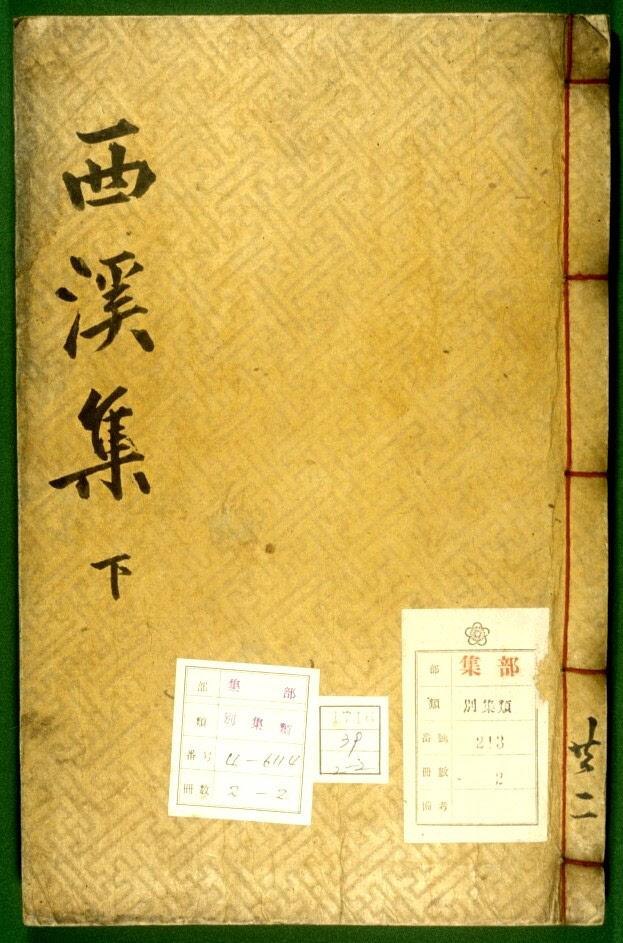 西溪集 下
部 集部
類 別集類
番号 4-6114
冊数 2-2
1716
39
2-2
部 集部
類 別集類
番號 213
冊數 2
備考
共二